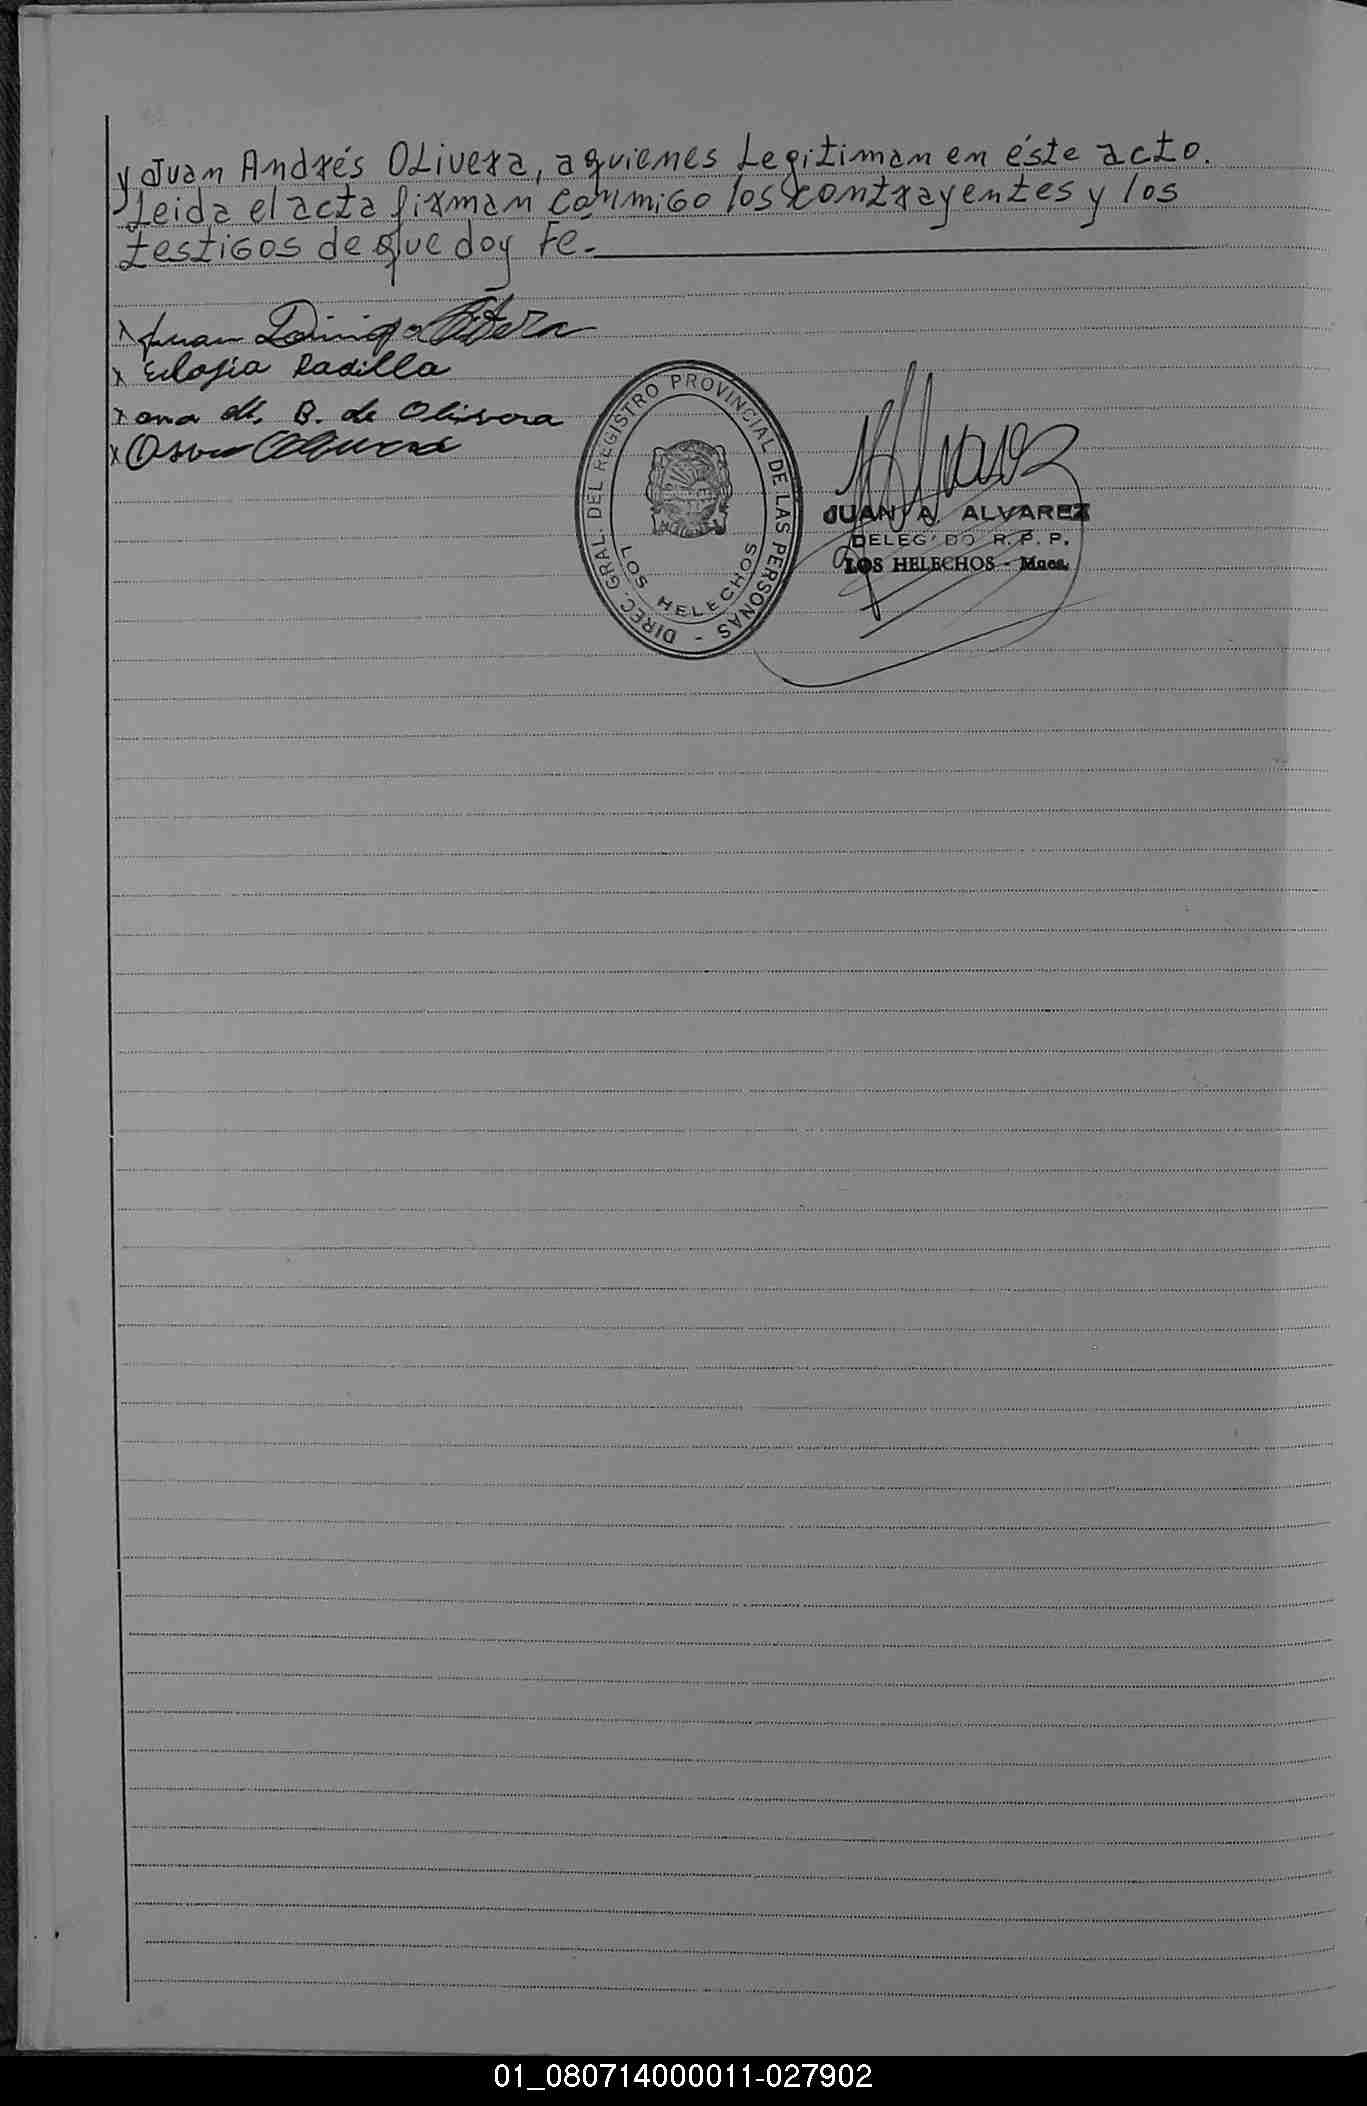 y Juan Andrés Olivera, a quienes Legitiman en éste acto.
Leida el acta firman conmigo los contrayentes y los
testigos de que doy Fe.-
x Juan
x Eulogia Padilla
x Ana M. B. de Olivera
x Olivera
DIREC. GRAL. DEL REGISTRO PROVINCIAL DE LAS PERSONAS -
LOS HELECHOS
JUAN A. ALVAREZ
DELEG DO R. P. P.
LOS HELECHOS - Mnes.
01_080714000011-027902